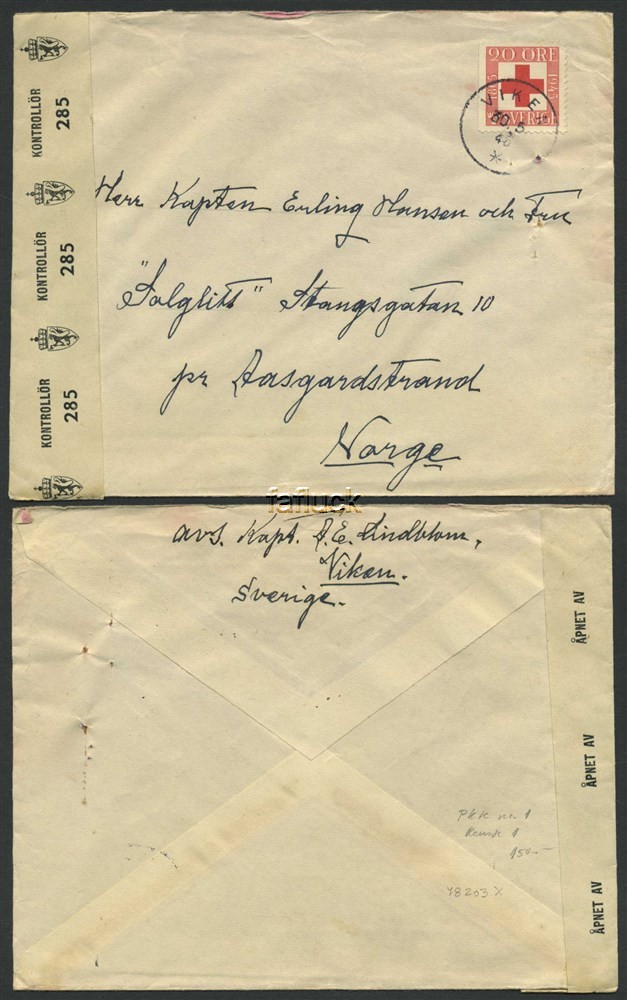 KONTROLLÖR 285
KONTROLLÖR 285
KONTROLLÖR 285
20 ÖRE
1865 1945
SVERIGE
VIKEN
30.5
Herr Kapten Erling Hansen och Fru
"Solglitt" Stangsgatan 10
pr Aasgardstrand
Norge
fafluck
avs. Kapt. A. E. Lindblom,
Viken.
Sverige.
ÅPNET AV
ÅPNET AV
ÅPNET AV
PKK nr. 1
150.-
78203 X